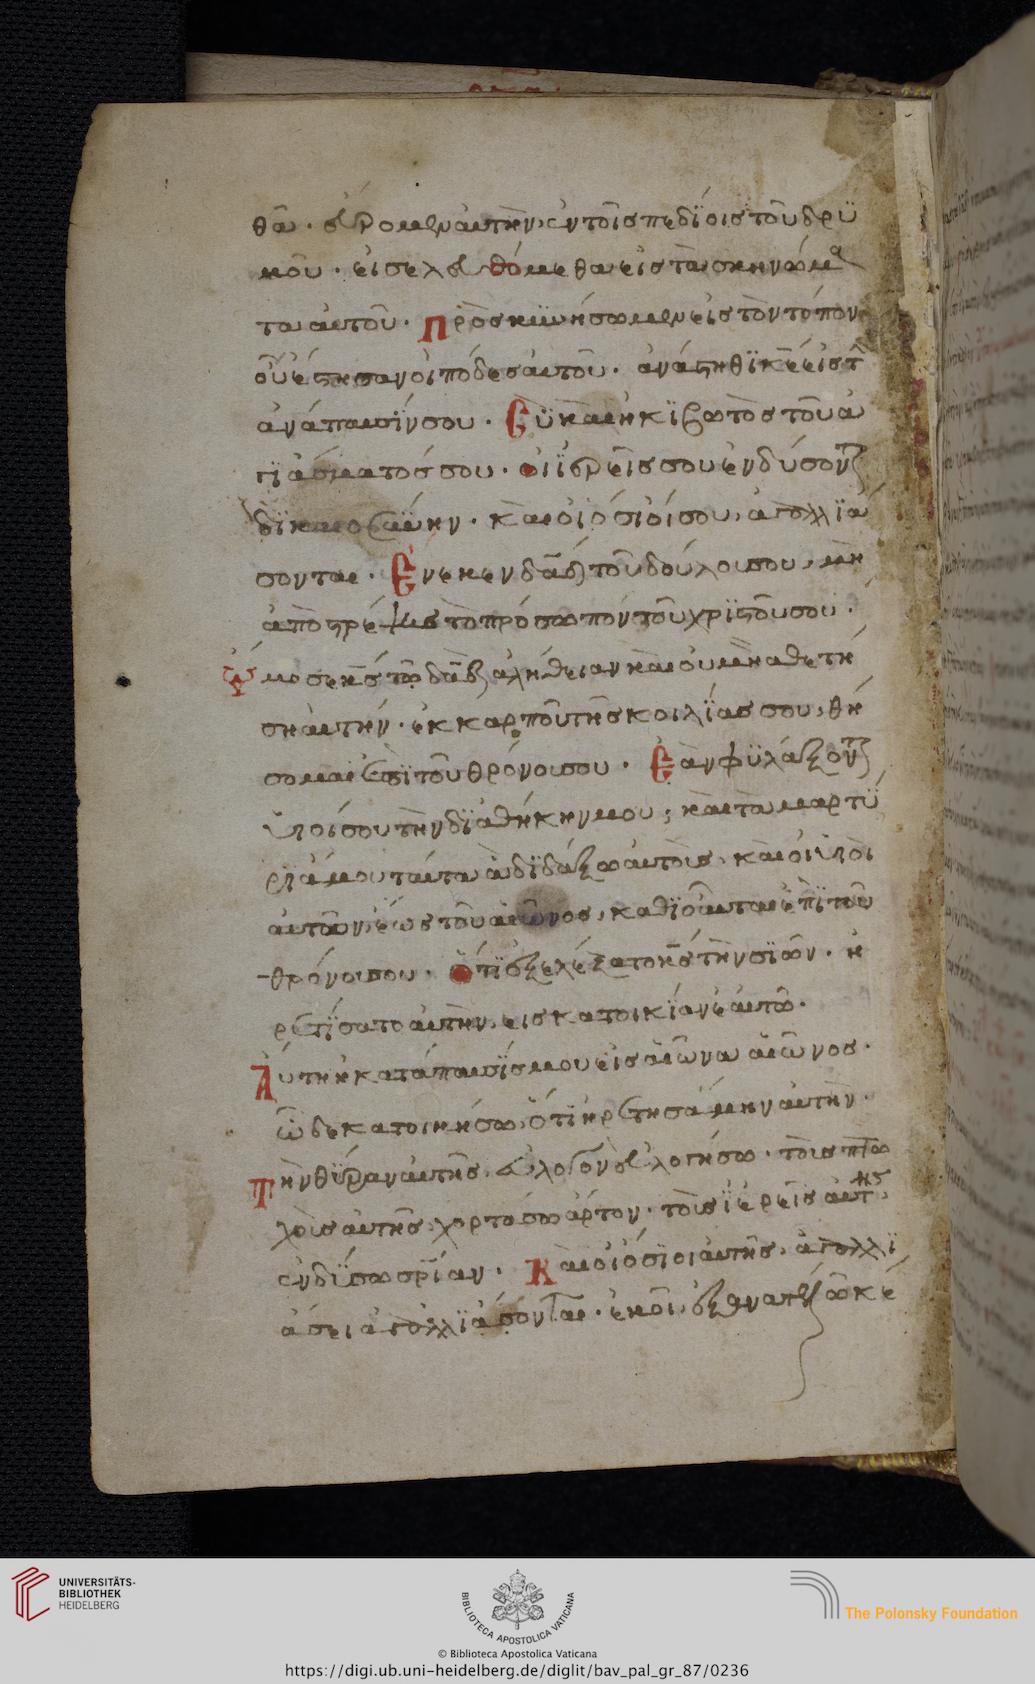 θᾶ· εὕρομεν αὐτὴν, ἐν τοῖς πεδΐοις τοῦ δρϋ
μοῦ· εἰσελευθόμεθα εἰς τὰ σκηνώμα
τα αὐτοῦ· Πρὸσκϋνήσωμεν εἰς τὸν τόπον
οὗ ἔστησαν οἱ πόδες αὐτοῦ· ἀνάστηθϊ κε εἰς τ
ἀνάπαυσίν σου· Σϋ καὶ ἡ κϊβωτὸς τοῦ ἁ
γϊάσματός σου· οἱ ἱερεῖς σου ἐνδύσοντ
δϊκαιοσύνην· καὶ οἱ ὅσιοί σου, ἀγαλλϊά
σονται· Ἕνεκεν δαδ τοῦ δούλου σου, μὴ
ἀποστρέψῃς τὸ πρόσωπον τοῦ χρϊστοῦ σου·
Ὤμοσεν κς τῶ δαδ ἀλήθειαν καὶ οὐ μὴ ἀθετή
ση αὐτήν· ἐκ καρποῦ τῆς κοιλΐας σου, θή
σομαι ἐπϊ τοῦ θρόνου σου· Ἐὰν φϋλάξοντ
υἱοί σου τὴν δϊαθήκην μου, καὶ τὰ μαρτϋ
ρϊά μου ταῦτα ἃ δϊδάξω αὐτοὺς· καὶ οἱ υἱοὶ
αὐτῶν, ἕως τοῦ αἰῶνος, καθϊοῦνται ἐπϊ τοῦ
θρόνου σου· ὅτϊ ἐξελέξατο κς τὴν σϊὼν· ἡ
ρετΐσατο αὐτὴν, εἰς κατοικΐαν ἑαυτῶ·
Αὕτη ἡ κατάπαυσΐς μου εἰς αἰῶνα αἰῶνος·
ὧδε κατοικήσω, ὅτϊ ἡρετησάμην αὐτήν·
Τὴν θΰραν αὐτῆς, εὐλογὸν εὐλογήσω· τοὺς πτω
χοὺς αὐτῆς χορτάσω ἄρτον· τοὺς ἱερεῖς αὐτῆς
ἐνδΰσω σριαν· Καὶ οἱ ὅσϊοι αὐτῆς, ἀγαλλϊ
άσει ἀγαλλϊάσονται· ἐκοῖ, ἐξανατελῶ κέ
© Biblioteca Apostolica Vaticana
https://digi.ub.uni-heidelberg.de/diglit/bav_pal_gr_87/0236
UNIVERSITÄTS-
BIBLIOTHEK
HEIDELBERG
BIBLIOTECA APOSTOLICA VATICANA
The Polonsky Foundation